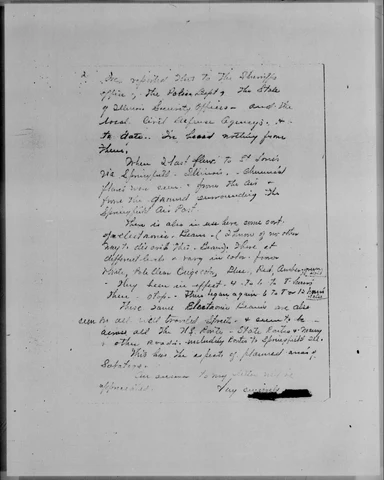 2.
reported this to the Sheriffs
Office, The Police Dept & The State
of Illinois Security Offices - and the
Local Civil Defense Agencys. &
to date. I've heard nothing from
them.
When I last flew to St Louis
via Springfield - Illinois. -
places were seen - from the air -
from the ground surrounding the
Springfield Air Port.
There is also in use here some sort
of electronic - Beam - (I know of no other
way to describe this - Beam) These at
different levels & vary in color - from
White, Blue, Red, Amber
- They been in effect. 4
There - stop - Then began again 6
These same Electronic Beams are also
seen on all well traveled Streets - & seem to be
across all the U.S. Routes - State Routes & many
other roads - including Routes to Springfield Ill.
This has the aspects of planned
Sabotage.
An answer to my letter will be
appreciated.
Very sincerely